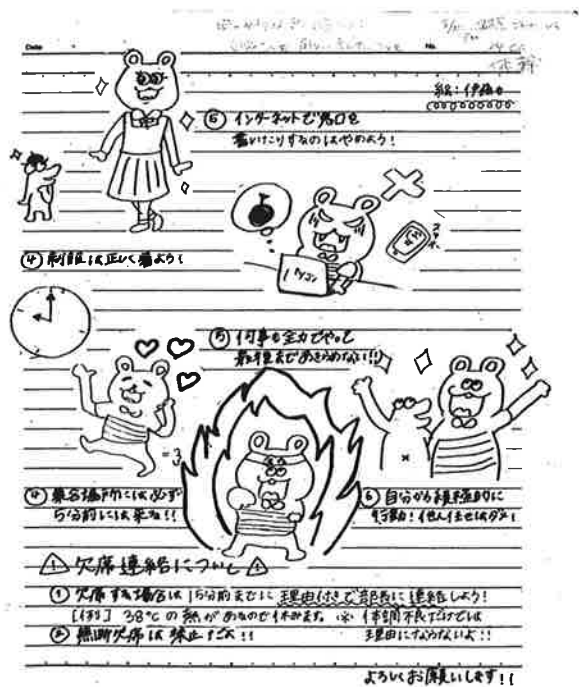 Date
No.
絵:伊藤
⑤ インターネットで悪口を
書いたりするのはやめよう!
スマホ
パソコン
④ 制服は正しく着よう!
⑤ 何事も全力でやって
最後まであきらめない!!
④ 集合場所には必ず
5分前には来る!!
⑥ 自分から積極的に
行動!他人任せはダメ!
⚠ 欠席連絡について ⚠
① 欠席する場合は15分前までに理由付きで部長に連絡しよう!
[例] 38℃の熱があるので休みます。※ 体調不良だけでは
理由にならないよ!!
② 無断欠席は禁止だよ!!
よろしくお願いします!!